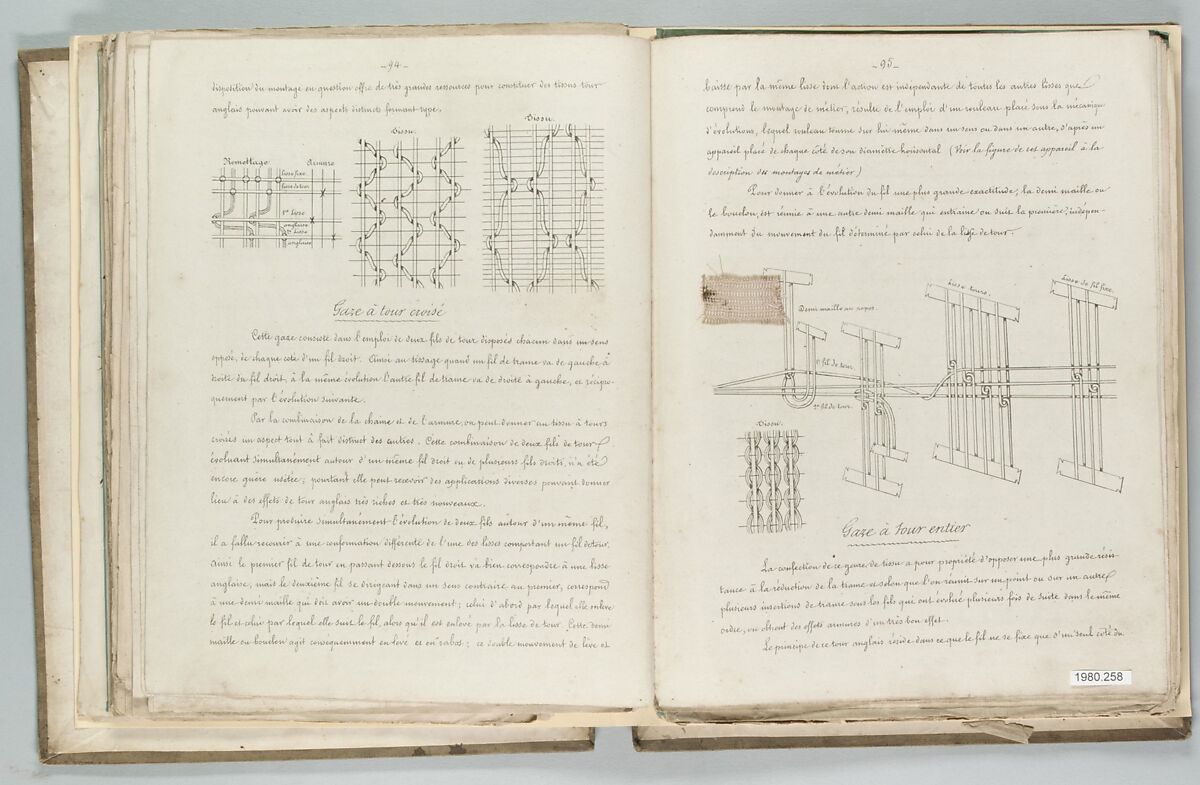 - 94 -
disposition du montage en question offre de très grandes ressources pour constituer des tissus tour
anglais pouvant avoir des aspects distincts formant type.
Remettage
Armure
lisse fixe
lisse de tour
1re Lisse
anglaise
2e Lisse
anglaise
Tissu.
Tissu.
Gaze à tour croisé
Cette gaze consiste dans l'emploi de deux fils de tour disposés chacun dans un sens
opposé, de chaque coté d'un fil droit. Ainsi au tissage quand un fil de trame va de gauche à
droite du fil droit, à la même évolution l'autre fil de trame va de droite à gauche, et récipro-
quement par l'évolution suivante.
Par la combinaison de la chaine et de l'armure, on peut donner au tissu à tours
croisés un aspect tout à fait distinct des autres. Cette combinaison de deux fils de tour
évoluant simultanément autour d'un même fil droit ou de plusieurs fils droits, n'a été
encore guère usitée; pourtant elle peut recevoir des applications diverses pouvant donner
lieu à des effets de tour anglais très riches et très nouveaux.
Pour produire simultanément l'évolution de deux fils autour d'un même fil,
il a fallu recourir à une conformation différente de l'une des lisses comportant un fil de tour.
Ainsi le premier fil de tour en passant dessous le fil droit va bien correspondre à une lisse
anglaise, mais le deuxième fil se dirigeant dans un sens contraire au premier, correspond
à une demi maille qui doit avoir un double mouvement; celui d'abord par lequel elle enlève
le fil et celui par lequel elle suit le fil, alors qu'il est enlevé par la lisse de tour. Cette demi
maille ou bouclon agit conséquemment en levé et en rabat; ce double mouvement de lève et
- 95 -
baisse par la même lisse dont l'action est indépendante de toutes les autres lisses que
comprend le montage de métier, résulte de l'emploi d'un rouleau placé sous la mécanique
d'évolutions, lequel rouleau tourne sur lui même dans un sens ou dans un autre, d'après un
appareil placé de chaque côté de son diamètre horisontal (Voir la figure de cet appareil à la
description des montages de métier)
Pour donner à l'évolution du fil une plus grande exactitude, la demi maille ou
le bouclon, est réunie à une autre demi maille qui entraine ou suit la première, indépen-
damment du mouvement du fil déterminé par celui de la lisse de tour.
Demi maille au repos.
Lisse tours.
Lisse de fil fixe.
1er fil de tour.
2e fil de tour.
Tissu.
Gaze à tour entier
La confection de ce genre de tissu a pour propriété d'opposer une plus grande résis-
tance à la réduction de la trame et selon que l'on réunit sur un point ou sur un autre
plusieurs insertions de trame sous les fils qui ont évolué plusieurs fois de suite dans le même
ordre, on obtient des effets armures d'un très bon effet.
Le principe de ce tour anglais réside dans ce que le fil ne se fixe que d'un seul côté du
1980.258